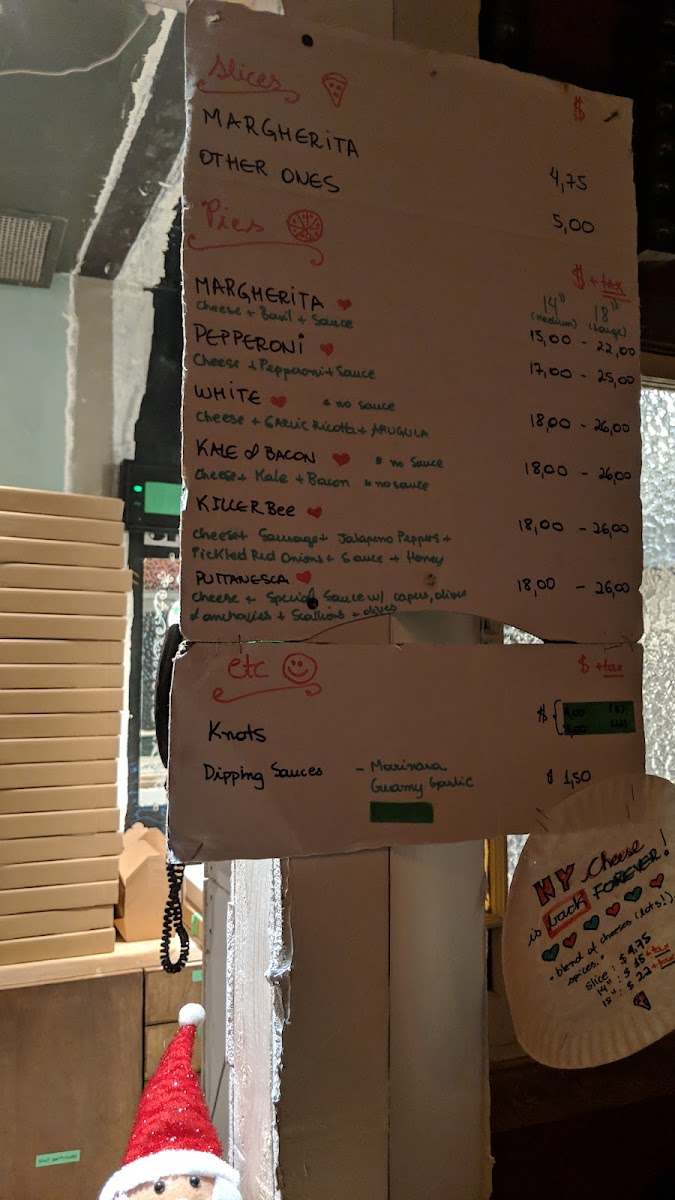 Slices $
MARGHERITA 4,75
OTHER ONES 5,00
Pies $ + tax
14" 18"
(medium) (Large)
MARGHERITA 15,00 - 22,00
Cheese + Basil + Sauce
PEPPERONI 17,00 - 25,00
Cheese + Pepperoni + Sauce
WHITE * no sauce 18,00 - 26,00
Cheese + GARLIC Ricotta + ARUGULA
KALE & BACON * no sauce 18,00 - 26,00
Cheese + Kale + Bacon * no sauce
KILLER Bee 18,00 - 26,00
Cheese + Sausage + Jalapeno Peppers +
Pickled Red Onions + Sauce + Honey
PUTTANESCA 18,00 - 26,00
Cheese + Special Sauce w/ capers, olives
& anchovies + Scallions + olives
etc $ + tax
Knots $
Dipping Sauces - Marinara $ 1,50
Creamy Garlic
NY cheese
is back FOREVER!
"blend of cheeses (lots!)
spices."
Slice: $4.75
14": $ 15 + tax
18": $ 22 + tax